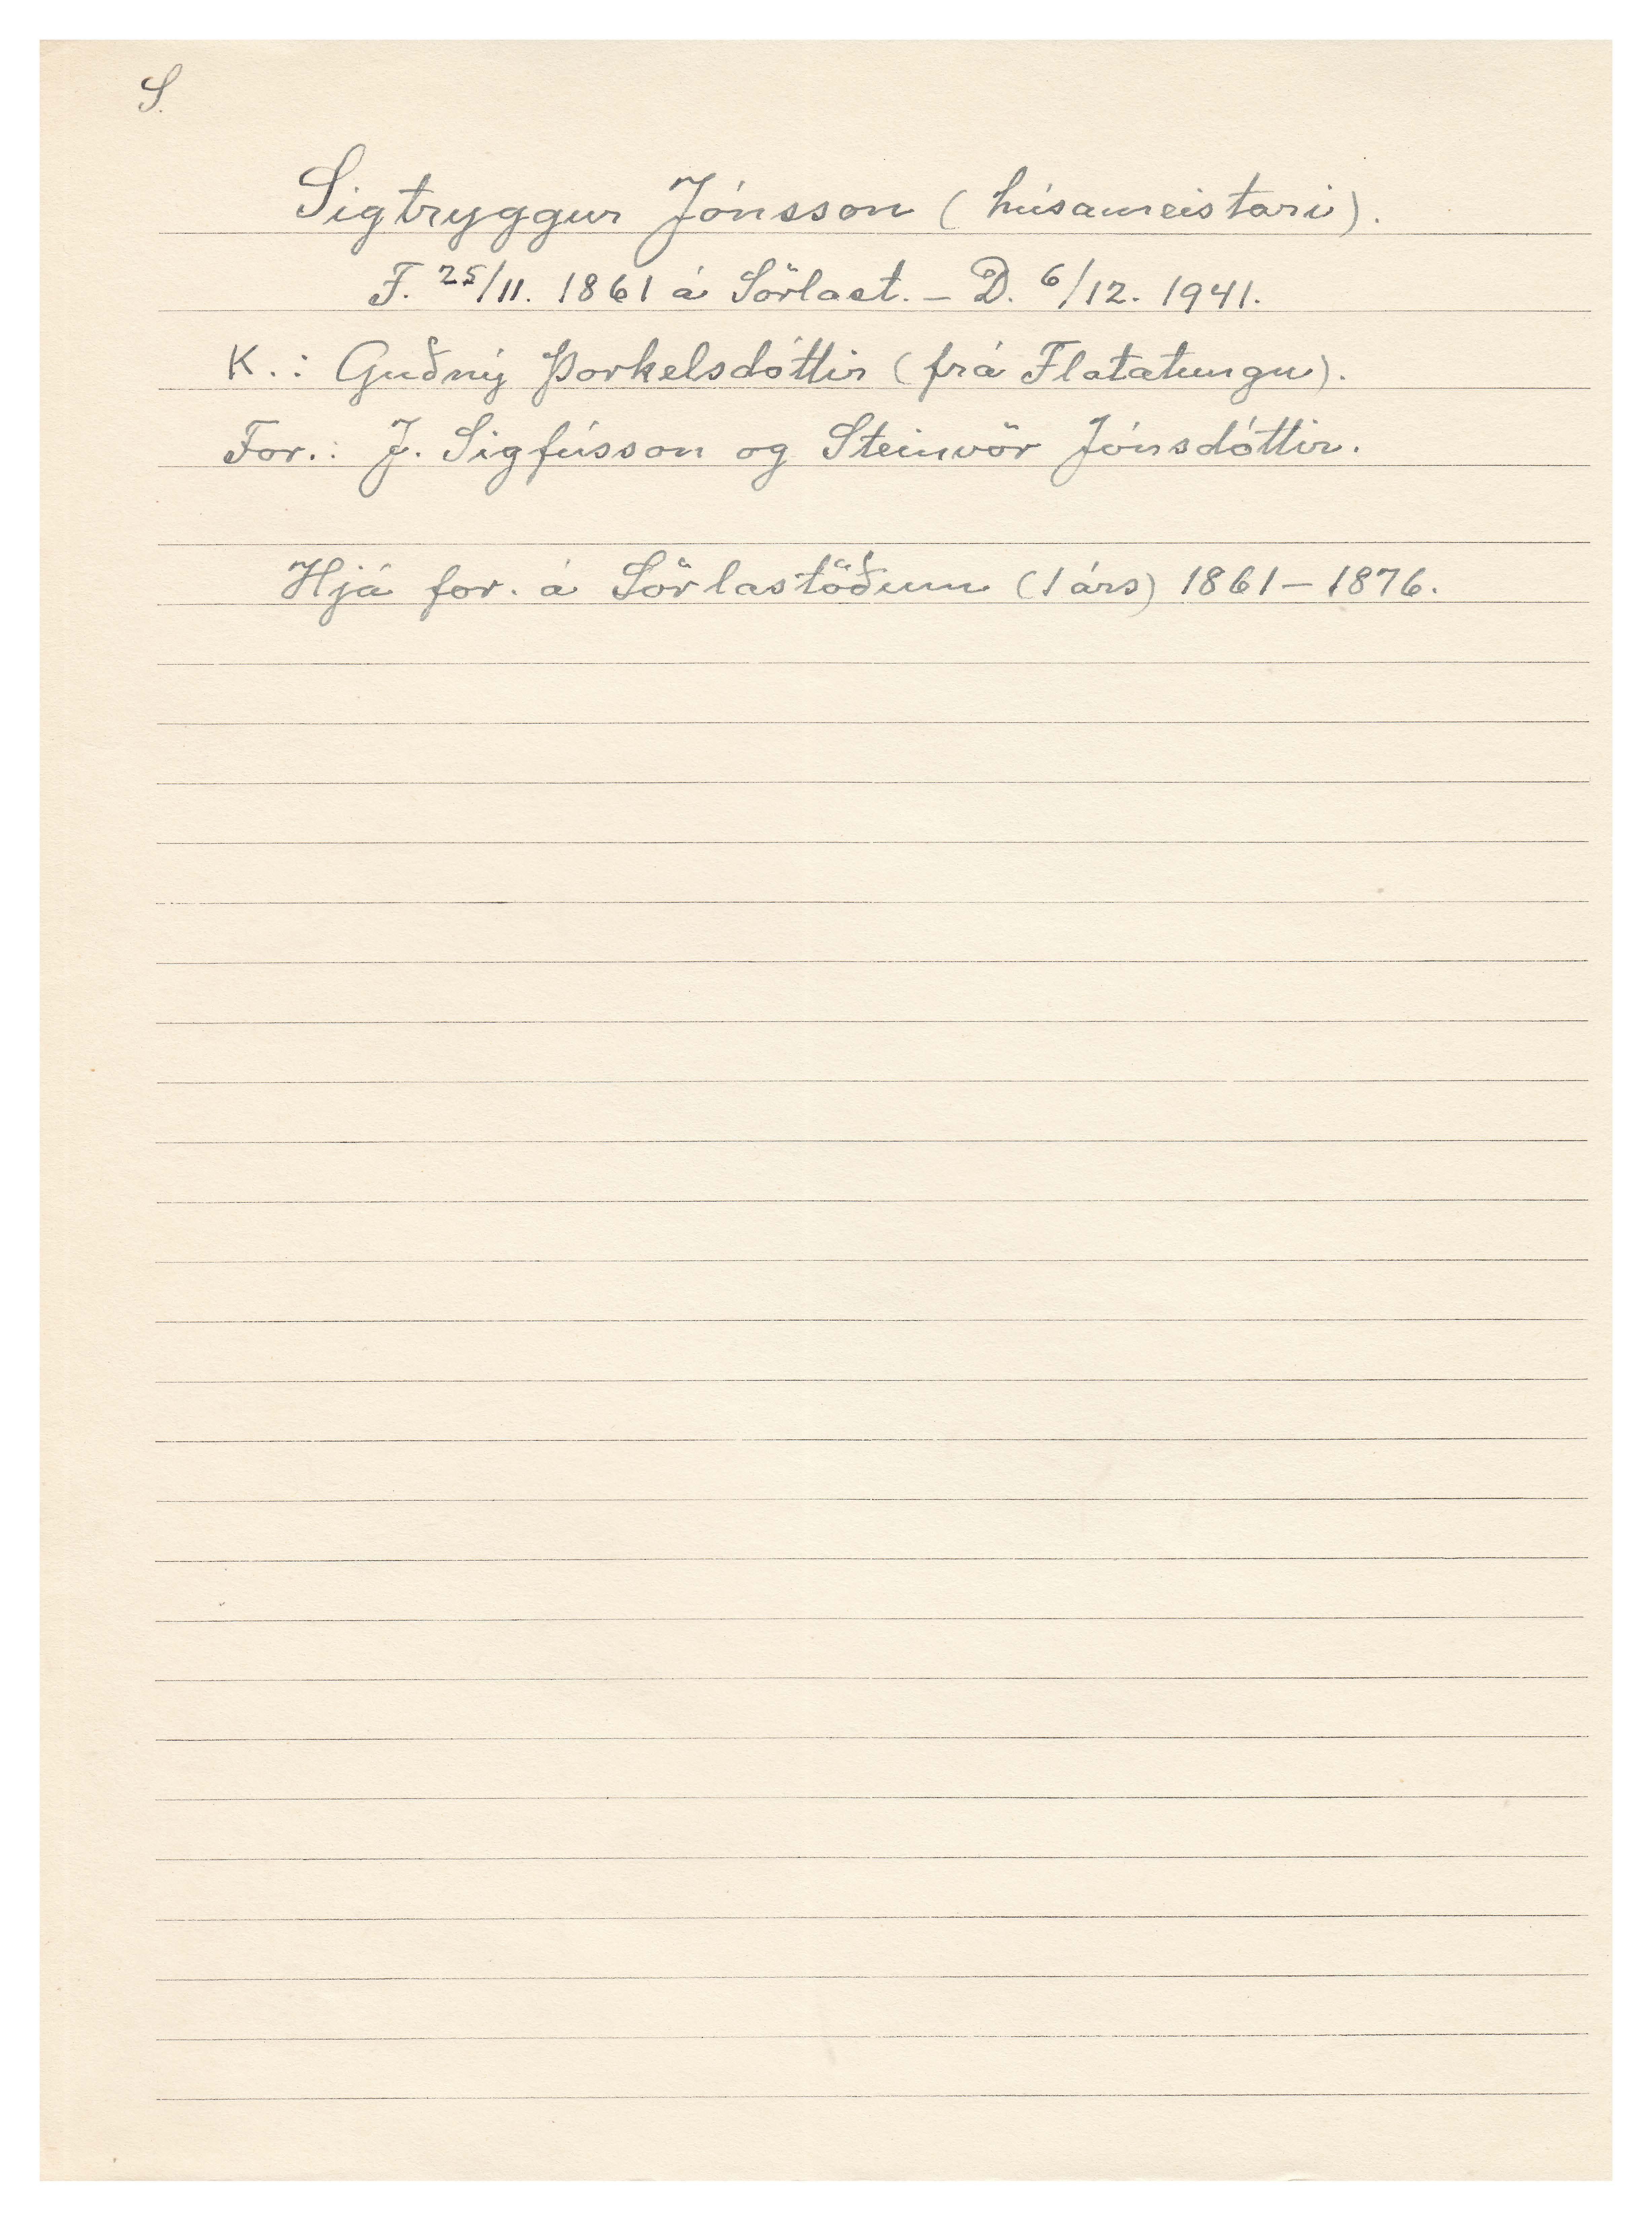 S.
Sigtryggur Jónsson (húsameistari).
F. 25/11. 1861 á Sörlast. – D. 6/12. 1941.
K.: Guðný Þorkelsdóttir (frá Flatatungu).
For.: J. Sigfússon og Steinvör Jónsdóttir.
Hjá for. á Sörlastöðum (1 árs) 1861 – 1876.